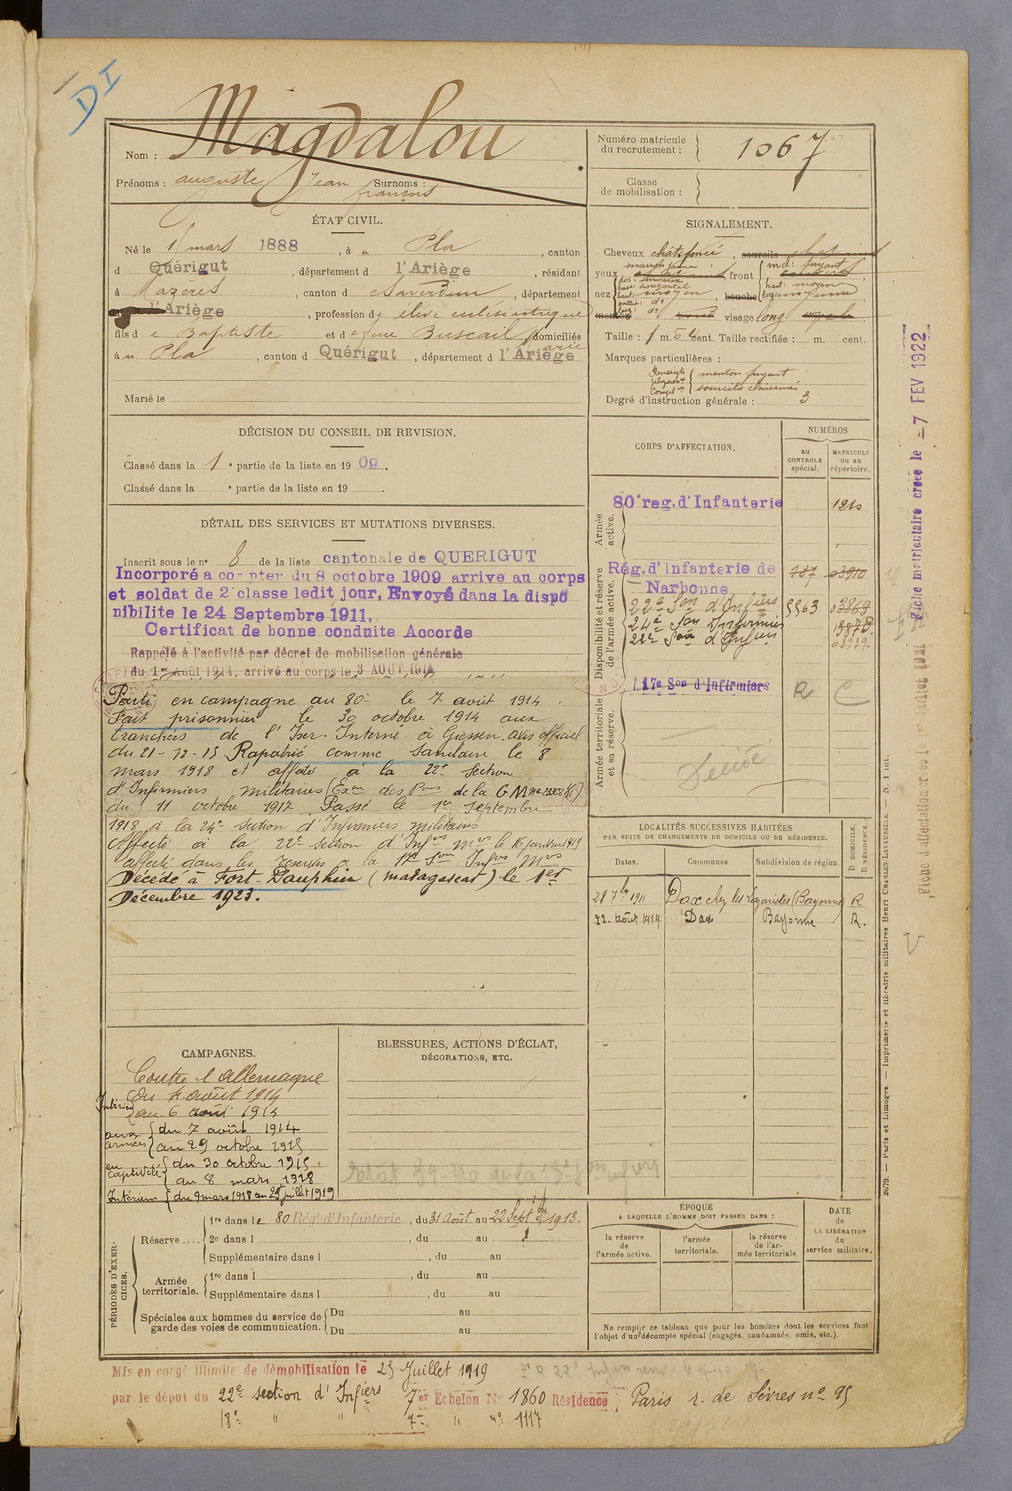 DI
Nom : Magdalou
Prénoms : auguste Jean françois Surnoms :
Numéro matricule du recrutement : 1067
Classe de mobilisation :
ÉTAT CIVIL.
Né le 1 mars 1888, à Pla, canton
d Quérigut, département d l'Ariège, résidant
à Mazères, canton d Saverdun, département
l'Ariège, profession d élève ecclésiastique
fils de Baptiste et de feue Buscail Marie domiciliés
à Pla, canton d Quérigut, département d l'Ariège
Marié le
SIGNALEMENT.
Cheveux chât. foncé, sourcils
yeux marron front
nez moyen, bouche
menton visage long
Taille : 1 m. cent. Taille rectifiée : m. cent.
Marques particulières :
menton fuyant
sourcils
Degré d'instruction générale : 3
DÉCISION DU CONSEIL DE REVISION.
Classé dans la 1e partie de la liste en 1909.
Classé dans la e partie de la liste en 19
DÉTAIL DES SERVICES ET MUTATIONS DIVERSES.
Inscrit sous le no 8 de la liste cantonale de QUERIGUT
Incorporé a compter du 8 octobre 1909 arrive au corps
et soldat de 2e classe ledit jour, Envoyé dans la dispo
nibilite le 24 Septembre 1911.
Certificat de bonne conduite Accorde
Rappelé à l'activité par décret de mobilisation générale
du 1er Août 1914, arrivé au corps le 3 AOUT 1914
Parti en campagne au 80e le 7 août 1914.
Fait prisonnier le 30 octobre 1914 aux
tranchées de l'Yser. Interné à Giessen. avis officiel
du 21-12-15 Rapatrié comme Sanitaire le 8
mars 1918 et affecté à la 22e Section
d'Infirmiers militaires
du 11 octobre 1917. Passé le 1er septembre
1918 à la 24e section d'Infirmiers militaires
Affecté à la 22e Section d'Infres Mres le 16 janvier 1919
affecté dans les réserves à la 17e Son Infres Mres
Décédé à Fort-Dauphin (madagascar) le 1er
Décembre 1923.
CORPS D'AFFECTATION.
NUMÉROS
au CONTROLE spécial.
MATRICULE ou au répertoire.
Armée active.
80e reg. d'Infanterie 1210
Disponibilité et réserve de l'armée active.
Rég. d'Infanterie de Narbonne 787 03910
22e Son d'Infiers 5863 02869
24e Son Infirmiers 13878
22e Son d'Infiers 03939
Armée territoriale et sa réserve.
17e Son d'Infirmiers R C
Décédé
Fiche matriculaire créée le -7 FEV 1922
LOCALITÉS SUCCESSIVES HABITÉES
PAR SUITE DE CHANGEMENTS DE DOMICILE OU DE RÉSIDENCE.
Dates. Communes Subdivision de région. D. DOMICILE. R. RÉSIDENCE.
21 7bre 1911 Dax chez les Lazaristes (Bayonne) R
12 août 1919 Dax Bayonne R.
CAMPAGNES.
Contre l'Allemagne
Intérieur du 2 août 1914
au 6 août 1914
aux armées du 7 août 1914
au 29 octobre 1915
en captivité du 30 octobre 1915
au 8 mars 1918
Intérieur du 9 mars 1918 au 25 juillet 1919
BLESSURES, ACTIONS D'ÉCLAT,
DÉCORATIONS, ETC.
PÉRIODES D'EXERCICES.
Réserve .... 1re dans le 80 Rég. d'Infanterie, du 31 Août au 22 Septbre 1913.
2e dans l , du au
Supplémentaire dans l , du au
Armée territoriale. 1re dans l , du au
Supplémentaire dans l , du au
Spéciales aux hommes du service de garde des voies de communication. Du au
Du au
ÉPOQUE
A LAQUELLE L'HOMME DOIT PASSER DANS :
la réserve de l'armée active.
l'armée territoriale.
la réserve de l'armée territoriale
DATE de LA LIBÉRATION du service militaire.
Ne remplir ce tableau que pour les hommes dont les services font
l'objet d'un décompte spécial (engagés, condamnés, omis, etc.).
2079. — Paris et Limoges. — Imprimerie et librairie militaires Henri CHARLES-LAVAUZELLE. — N. 1 int.
Mis en congé illimité de démobilisation le 25 Juillet 1919
par le dépot du 22e section d'Infiers 7er Echelon No 1860 Résidence Paris r. de Sèvres no 95
18e " " 7e " no 1117